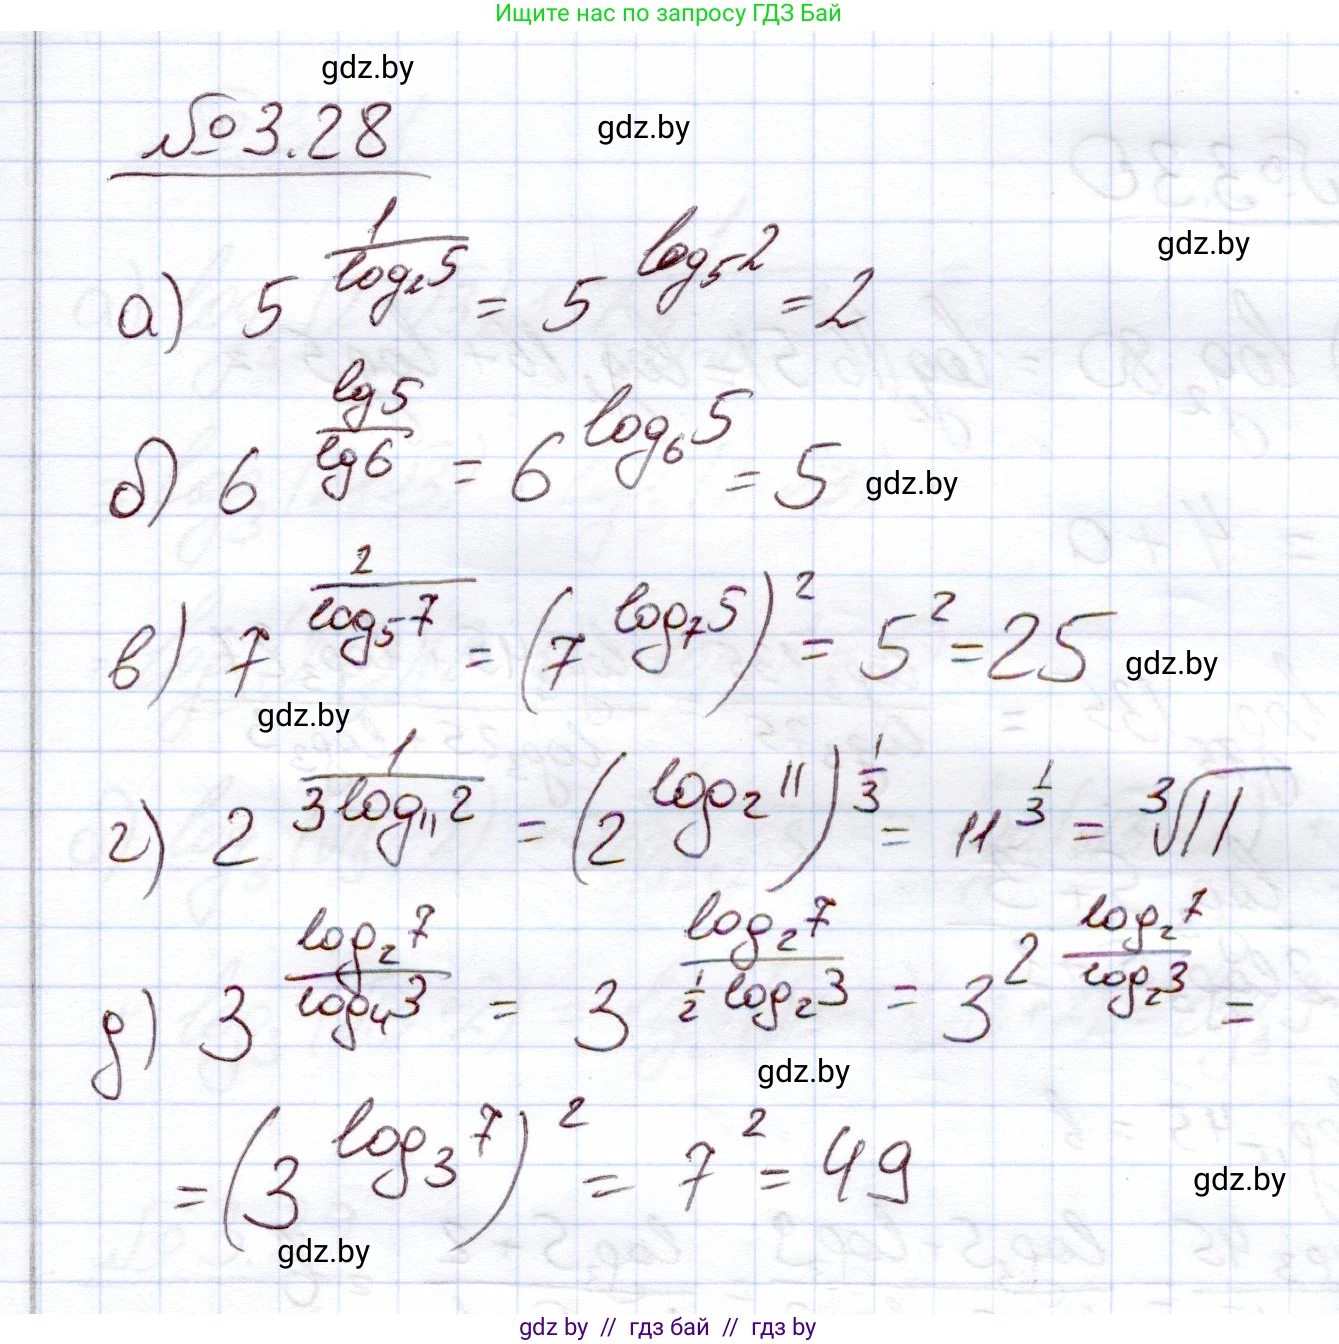 Ищите нас по запросу ГДЗ Бай
gdz.by
№3.28
gdz.by
gdz.by
а) 5^(1/log₂5) = 5^(log₅2) = 2
б) 6^(lg5/lg6) = 6^(log₆5) = 5 gdz.by
в) 7^(2/log₅7) = (7^(log₇5))² = 5² = 25 gdz.by
gdz.by
г) 2^(1/(3log₁₁2)) = (2^(log₂11))^(1/3) = 11^(1/3) = ³√11
д) 3^(log₂7/log₄3) = 3^(log₂7/(1/2 log₂3)) = 3^(2 log₂7/log₂3) =
gdz.by
= (3^(log₃7))² = 7² = 49
gdz.by
gdz.by
gdz by // гдз бай // гдз by